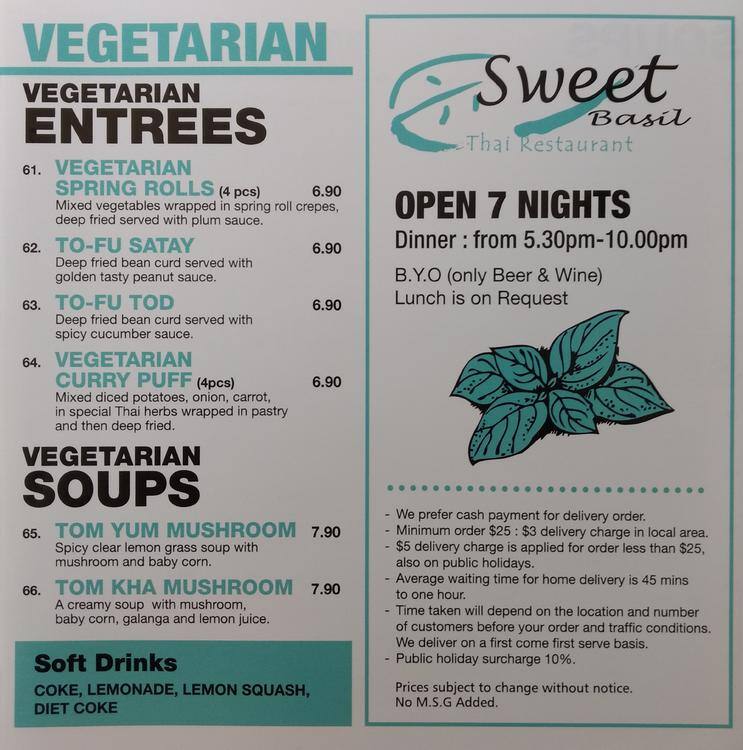 VEGETARIAN
VEGETARIAN
ENTREES
61. VEGETARIAN
SPRING ROLLS (4 pcs) 6.90
Mixed vegetables wrapped in spring roll crepes,
deep fried served with plum sauce.
62. TO-FU SATAY 6.90
Deep fried bean curd served with
golden tasty peanut sauce.
63. TO-FU TOD 6.90
Deep fried bean curd served with
spicy cucumber sauce.
64. VEGETARIAN
CURRY PUFF (4pcs) 6.90
Mixed diced potatoes, onion, carrot,
in special Thai herbs wrapped in pastry
and then deep fried.
VEGETARIAN
SOUPS
65. TOM YUM MUSHROOM 7.90
Spicy clear lemon grass soup with
mushroom and baby corn.
66. TOM KHA MUSHROOM 7.90
A creamy soup with mushroom,
baby corn, galanga and lemon juice.
Soft Drinks
COKE, LEMONADE, LEMON SQUASH,
DIET COKE
Sweet
Basil
Thai Restaurant
OPEN 7 NIGHTS
Dinner : from 5.30pm-10.00pm
B.Y.O (only Beer & Wine)
Lunch is on Request
- We prefer cash payment for delivery order.
- Minimum order $25 : $3 delivery charge in local area.
- $5 delivery charge is applied for order less than $25,
also on public holidays.
- Average waiting time for home delivery is 45 mins
to one hour.
- Time taken will depend on the location and number
of customers before your order and traffic conditions.
We deliver on a first come first serve basis.
- Public holiday surcharge 10%.
Prices subject to change without notice.
No M.S.G Added.